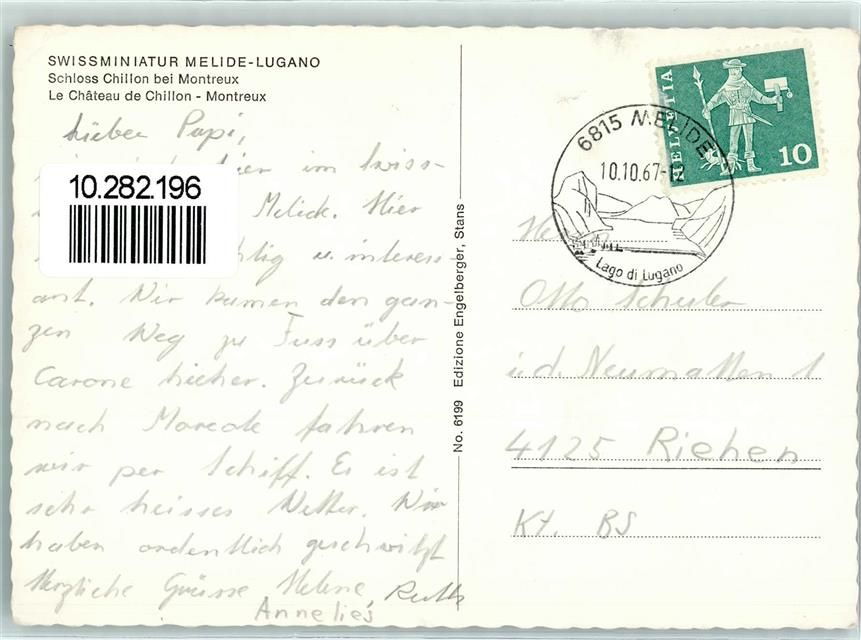 SWISSMINIATUR MELIDE-LUGANO
Schloss Chillon bei Montreux
Le Château de Chillon - Montreux
Lieber Papi,
hier im Swiss-
10.282.196
Melide. Hier
u. interess-
ant. Wir kamen den gan-
zen Weg zu Fuss über
Carone hieher. Zurück
nach Morcote fahren
wir per Schiff. Es ist
sehr heisses Wetter. Wir
haben ordentlich geschwitzt
Herzliche Grüsse Helene, Ruth
Annelies
No. 6199 Edizione Engelberger, Stans
HELVETIA
10
6815 MELIDE
10.10.67-12
Lago di Lugano
Otto Schuler
i.d. Neumatten 1
4125 Riehen
Kt. BS